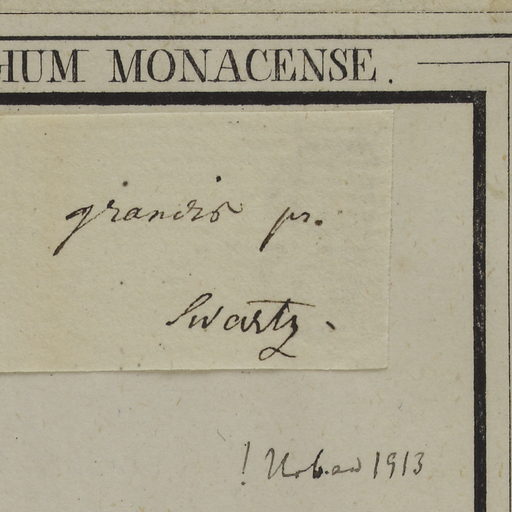 HUM MONACENSE.
grandis pr.
Swartz.
! Urban 1913